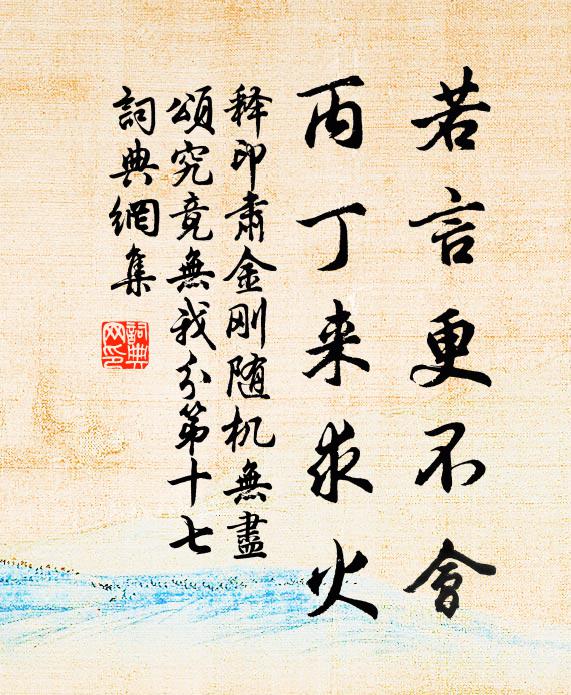 若言更不會
丙丁来求火
释印肃金刚随机無盡
頌究竟無我分第十七
詞典網集
詞典
网印